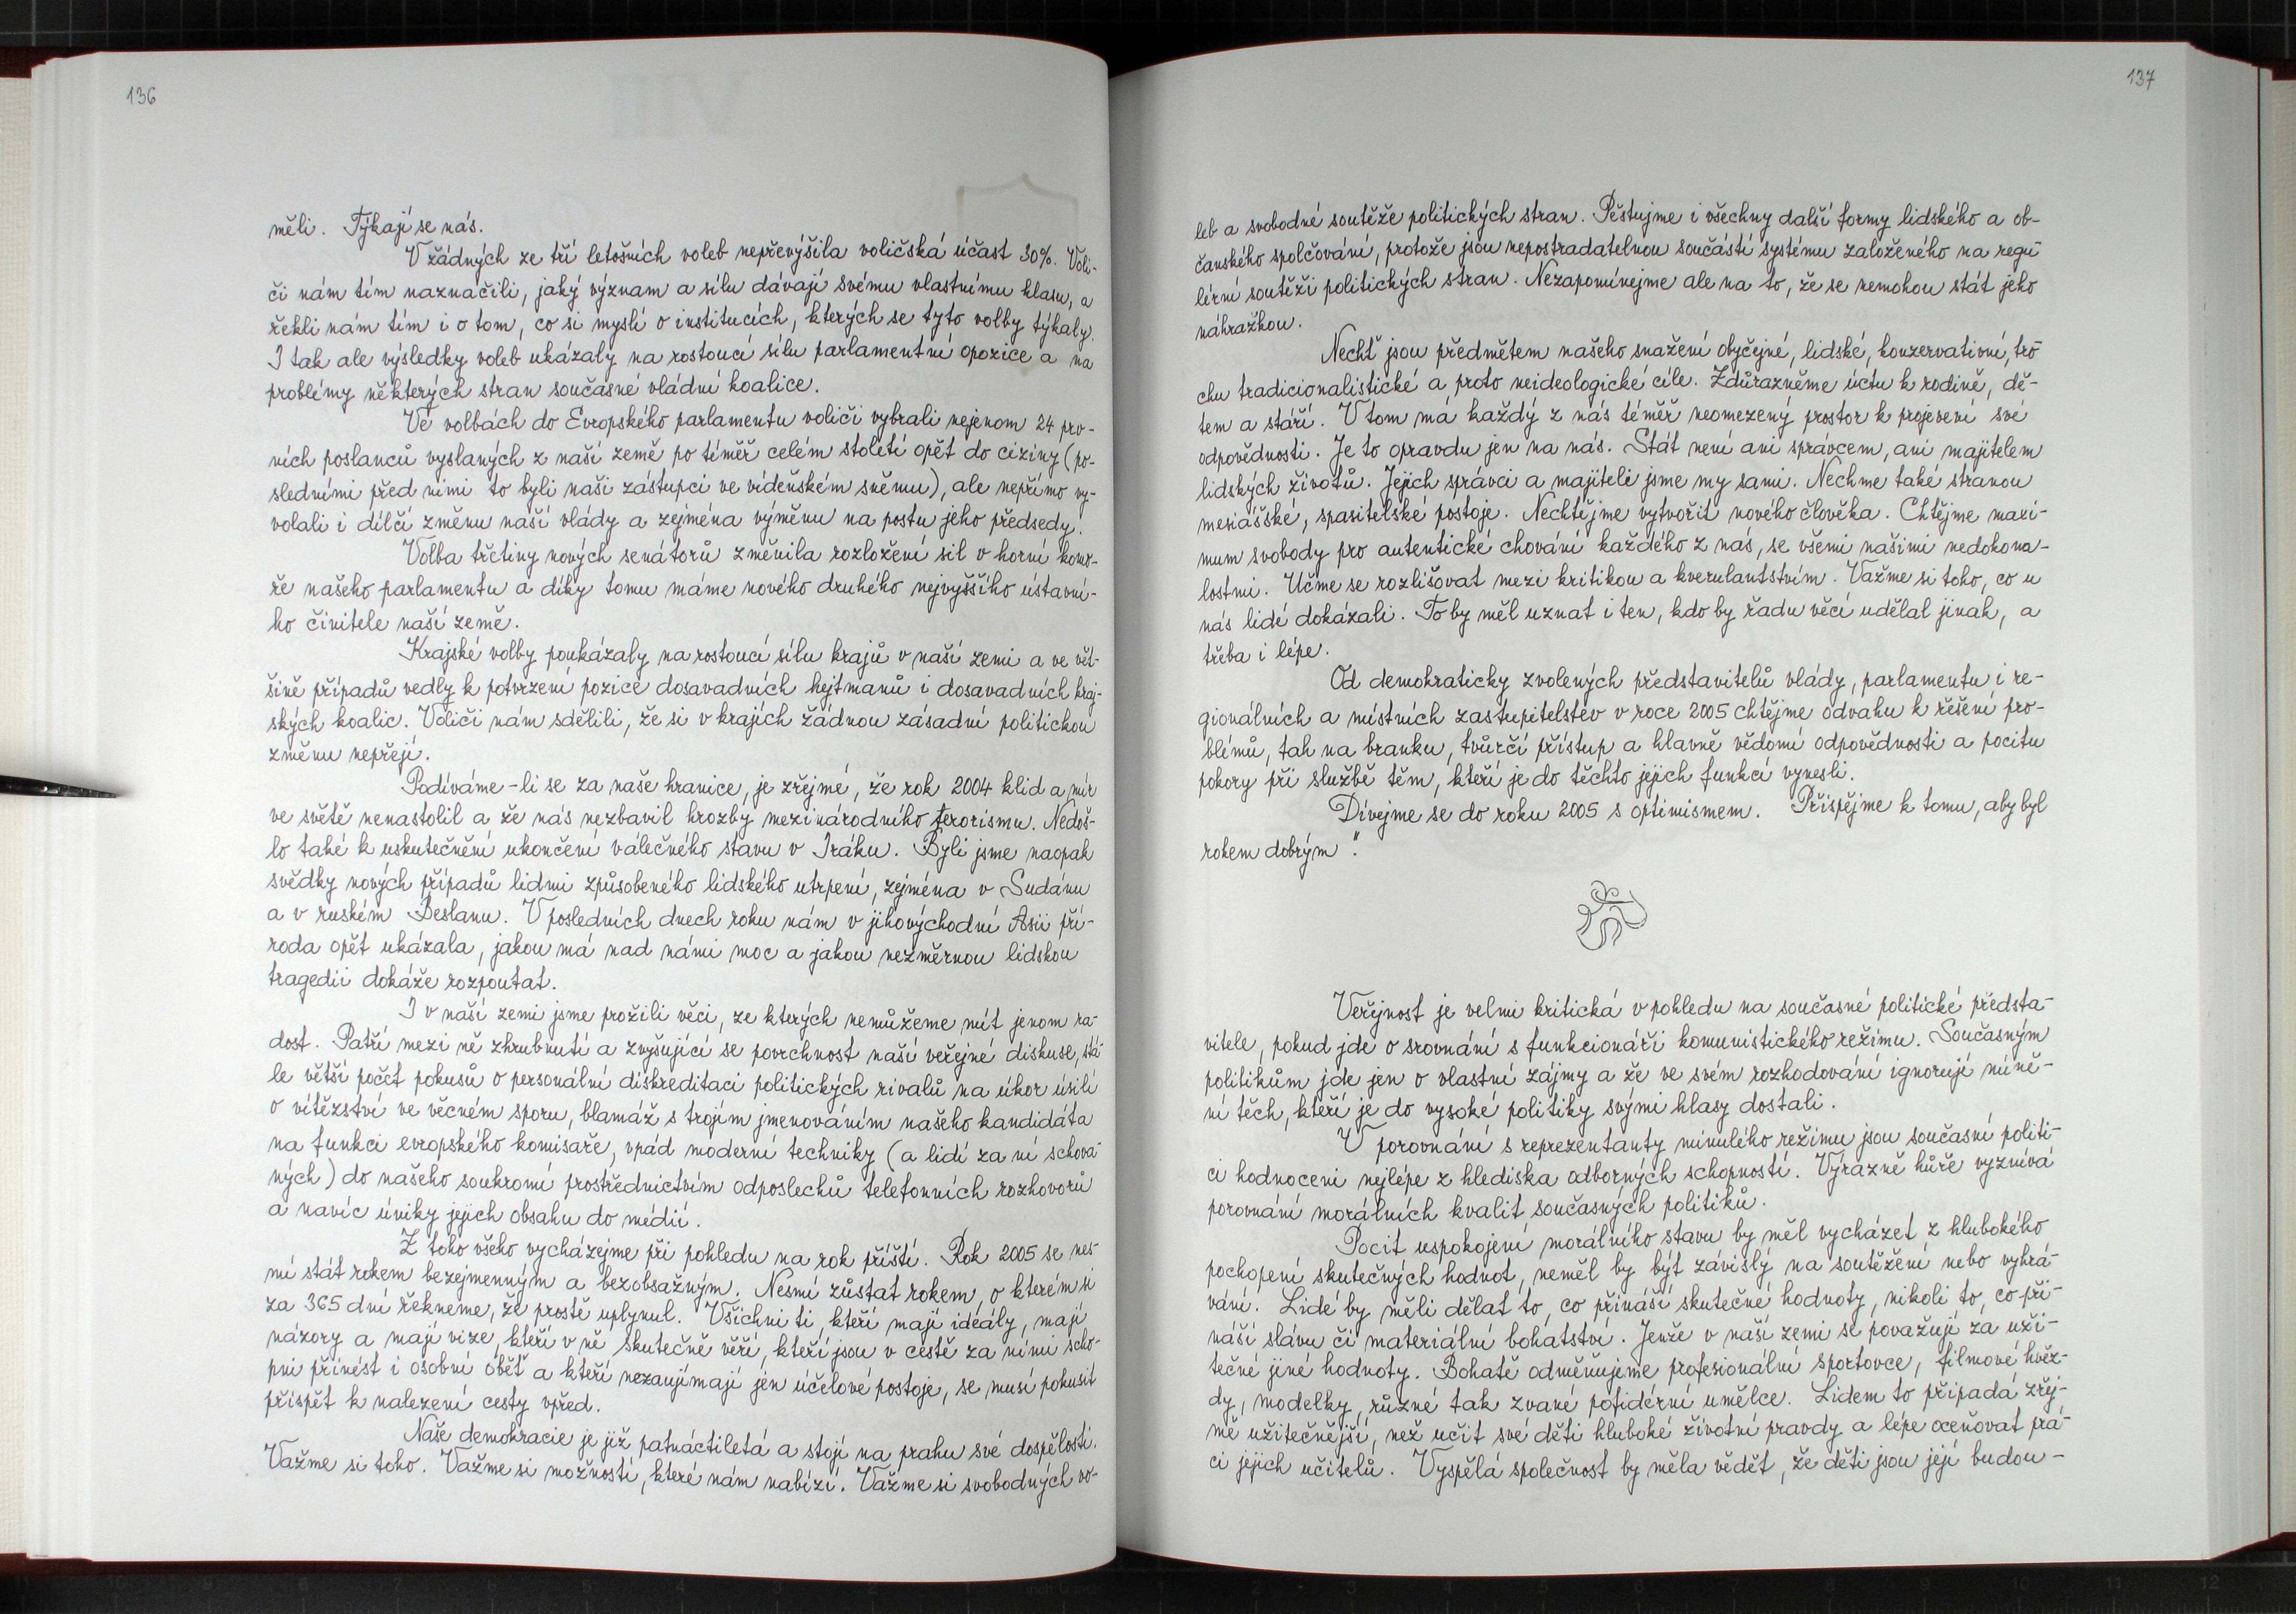 136
měli. Týkají se nás.
V žádných ze tří letošních voleb nepřevýšila voličská účast 30%. Voli-
či nám tím naznačili, jaký význam a sílu dávají svému vlastnímu hlasu, a
řekli nám tím i o tom, co si myslí o institucích, kterých se tyto volby týkaly.
I tak ale výsledky voleb ukázaly na rostoucí sílu parlamentní opozice a na
problémy některých stran současné vládní koalice.
Ve volbách do Evropského parlamentu voliči vybrali nejenom 24 prv-
ních poslanců vyslaných z naší země po téměř celém století opět do ciziny (po-
sledními před nimi to byli naši zástupci ve vídeňském sněmu), ale nepřímo vy-
volali i dílčí změnu naší vlády a zejména výměnu na postu jeho předsedy.
Volba třetiny nových senátorů změnila rozložení sil v horní komo-
ře našeho parlamentu a díky tomu máme nového druhého nejvyššího ústavní-
ho činitele naší země.
Krajské volby poukázaly na rostoucí sílu krajů v naší zemi a ve vět-
šině případů vedly k potvrzení pozice dosavadních hejtmanů i dosavadních kraj-
ských koalic. Voliči nám sdělili, že si v krajích žádnou zásadní politickou
změnu nepřejí.
Podíváme-li se za naše hranice, je zřejmé, že rok 2004 klid a mír
ve světě nenastolil a že nás nezbavil hrozby mezinárodního terorismu. Nedoš-
lo také k uskutečnění ukončení válečného stavu v Iráku. Byli jsme naopak
svědky nových případů lidmi způsobeného lidského utrpení, zejména v Sudánu
a v ruském Beslanu. V posledních dnech roku nám v jihovýchodní Asii pří-
roda opět ukázala, jakou má nad námi moc a jakou nezměrnou lidskou
tragedii dokáže rozpoutat.
I v naší zemi jsme prožili věci, ze kterých nemůžeme mít jenom ra-
dost. Patří mezi ně zhrubnutí a zvyšující se povrchnost naší veřejné diskuse, stá-
le větší počet pokusů o personální diskreditaci politických rivalů na úkor úsilí
o vítězství ve věcném sporu, blamáž s trojím jmenováním našeho kandidáta
na funkci evropského komisaře, vpád moderní techniky (a lidí za ní schova-
ných) do našeho soukromí prostřednictvím odposlechů telefonních rozhovorů
a navíc úniky jejich obsahu do médií.
Z toho všeho vycházejme při pohledu na rok příští. Rok 2005 se nes-
mí stát rokem bezejmenným a bezobsažným. Nesmí zůstat rokem, o kterém si
za 365 dní řekneme, že prostě uplynul. Všichni ti, kteří mají ideály, mají
názory a mají vize, kteří v ně skutečně věří, kteří jsou v cestě za nimi scho-
pni přinést i osobní oběť a kteří nezaujímají jen účelové postoje, se musí pokusit
přispět k nalezení cesty vpřed.
Naše demokracie je již patnáctiletá a stojí na prahu své dospělosti.
Važme si toho. Važme si možností, které nám nabízí. Važme si svobodných vo-
137
leb a svobodné soutěže politických stran. Pěstujme i všechny další formy lidského a ob-
čanského spolčování, protože jsou nepostradatelnou součástí systému založeného na regu-
lérní soutěži politických stran. Nezapomínejme ale na to, že se nemohou stát jeho
náhražkou.
Nechť jsou předmětem našeho snažení obyčejné, lidské, konzervativní, tro-
chu tradicionalistické a proto neideologické cíle. Zdůrazněme úctu k rodině, dě-
tem a stáří. V tom má každý z nás téměř neomezený prostor k projevení své
odpovědnosti. Je to opravdu jen na nás. Stát není ani správcem, ani majitelem
lidských životů. Jejich správci a majiteli jsme my sami. Nechme také stranou
mesiášské, spasitelské postoje. Nechtějme vytvořit nového člověka. Chtějme maxi-
mum svobody pro autentické chování každého z nás, se všemi našimi nedokona-
lostmi. Učme se rozlišovat mezi kritikou a kverulantstvím. Važme si toho, co u
nás lidé dokázali. To by měl uznat i ten, kdo by řadu věcí udělal jinak, a
třeba i lépe.
Od demokraticky zvolených představitelů vlády, parlamentu i re-
gionálních a místních zastupitelstev v roce 2005 chtějme odvahu k řešení pro-
blémů, tah na branku, tvůrčí přístup a hlavně vědomí odpovědnosti a pocitu
pokory při službě těm, kteří je do těchto jejich funkcí vynesli.
Dívejme se do roku 2005 s optimismem. Přispějme k tomu, aby byl
rokem dobrým".
Veřejnost je velmi kritická v pohledu na současné politické předsta-
vitele, pokud jde o srovnání s funkcionáři komunistického režimu. Současným
politikům jde jen o vlastní zájmy a že ve svém rozhodování ignorují míně-
ní těch, kteří je do vysoké politiky svými hlasy dostali.
V porovnání s reprezentanty minulého režimu jsou současní politi-
ci hodnoceni nejlépe z hlediska odborných schopností. Výrazně hůře vyznívá
porovnání morálních kvalit současných politiků.
Pocit uspokojení morálního stavu by měl vycházet z hlubokého
pochopení skutečných hodnot, neměl by být závislý na soutěžení nebo vyhrá-
vání. Lidé by měli dělat to, co přináší skutečné hodnoty, nikoli to, co při-
náší slávu či materiální bohatství. Jenže v naší zemi se považují za uži-
tečné jiné hodnoty. Bohatě odměňujeme profesionální sportovce, filmové hvěz-
dy, modelky, různé tak zvané pofidérní umělce. Lidem to připadá zřej-
mě užitečnější, než učit své děti hluboké životní pravdy a lépe oceňovat prá-
ci jejich učitelů. Vyspělá společnost by měla vědět, že děti jsou její budou-